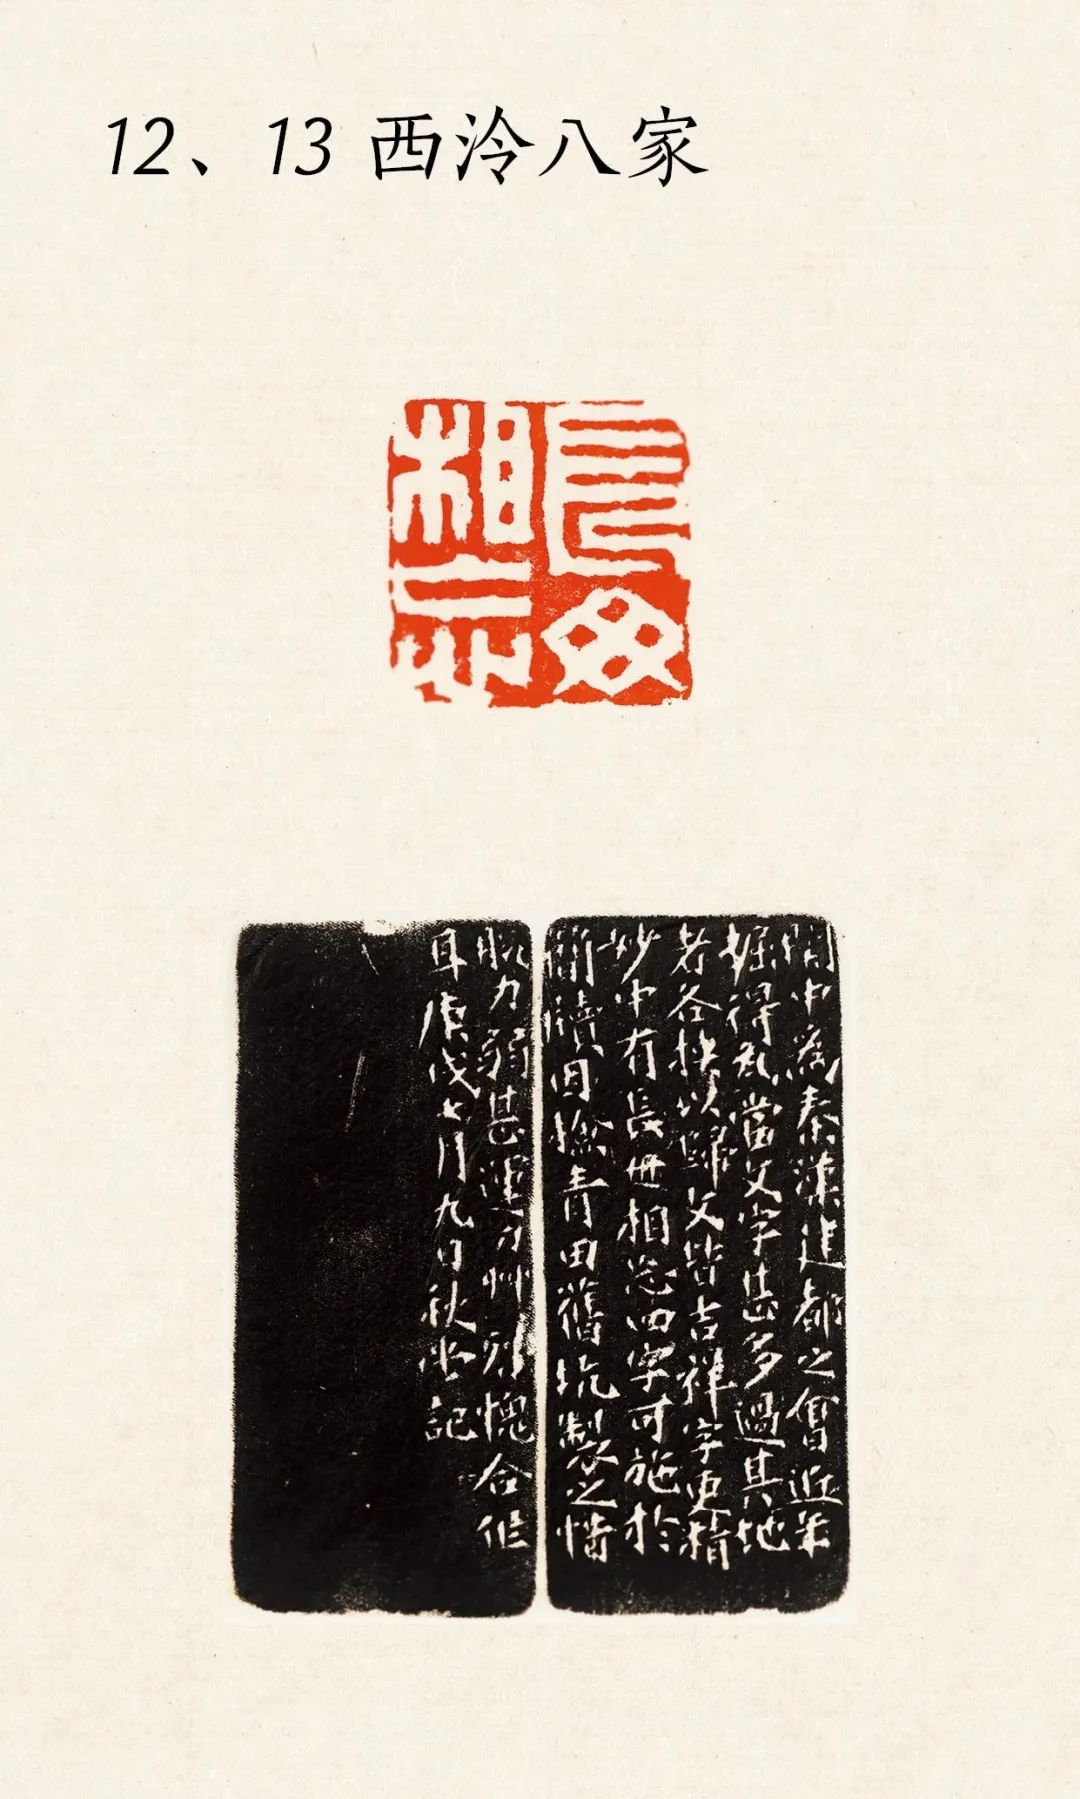 12、13 西泠八家
長毋
相忘
關中為秦漢建都之會近年
掘得瓦當文字甚多過其地
者各以歸文皆吉祥字更精
妙中有長毋相忘四字可施於
簡牘因撿青田舊坑製之惜
腕力弱甚運刀艸愧合作
耳庚戌七月九日秋堂記